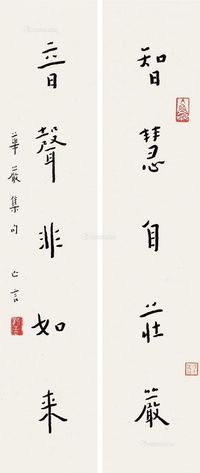 智慧自莊嚴
音聲非如来
華嚴集句 亡言